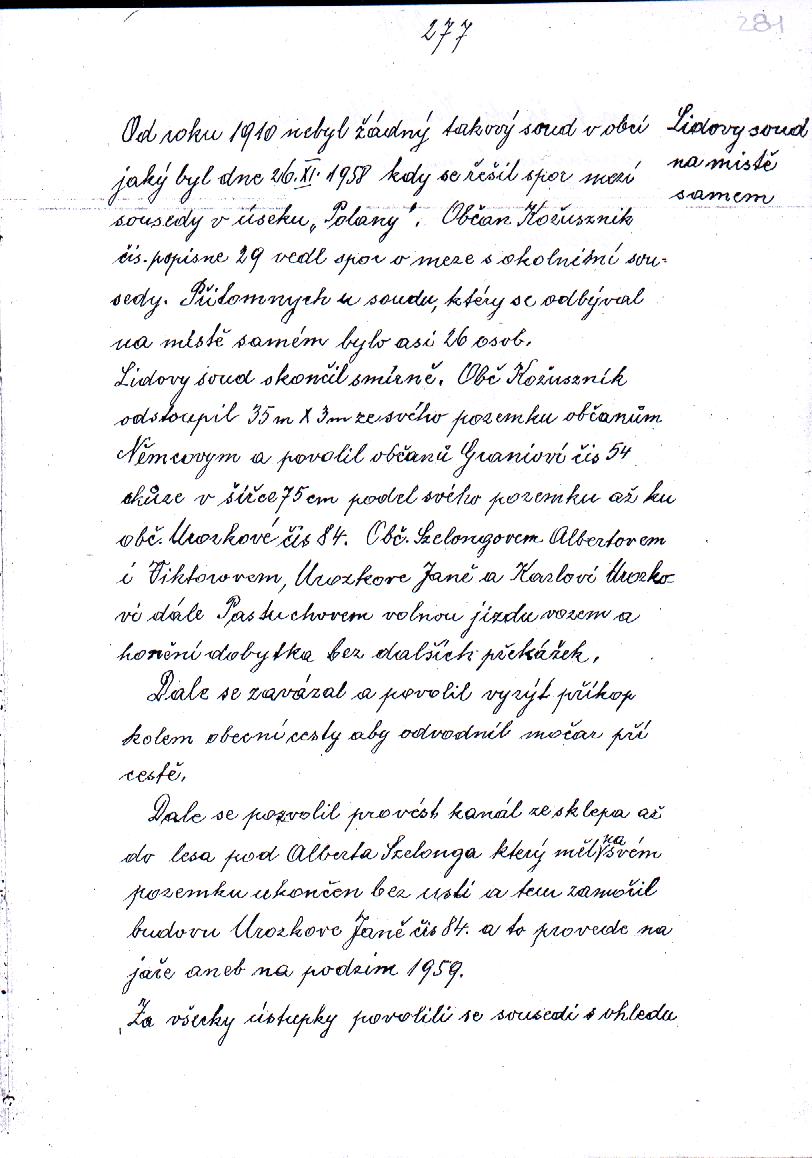 277
281
Lidovy soud
na mistě
samem
Od roku 1910 nebyl žádný takový soud v obci
jaký byl dne 26.XI. 1958 kdy se řešil spor mezi
sousedy v úseku „Polany". Občan Kožusznik
čis. popisne 29 vedl spor o meze s okolními sou-
sedy. Přitomnych u soudu, který se odbýval
na mistě samém bylo asi 26 osob.
Lidovy soud skončil smírně. Obč Kožuszník
odstoupil 35 m X 3 m ze svého pozemku občanům
Němcovym a povolil občanů Graniovi čis 54
chůze v šířce 75 cm podel svého pozemku až ku
obč. Urozkové čis 84. Obč. Szelongovem Albertovem
i Viktorovem, Urozkove Janě a Karlovi Urozko-
vi dále Pastuchovem volnou jízdu vozem a
honění dobytka bez dalších překážek.
Dale se zavázal a povolil vyrýt příkop
kolem obecní cesty aby odvodnil močar při
cestě.
Dale se pozvolil provést kanál ze sklepa až
do lesa pod Alberta Szelonga který měl na svém
pozemku ukončen bez usti a tem zamočil
budovu Urozkove Janě čis 84. a to provede na
jaře aneb na podzim 1959.
Za všecky ústupky povolili se sousedi s ohledu